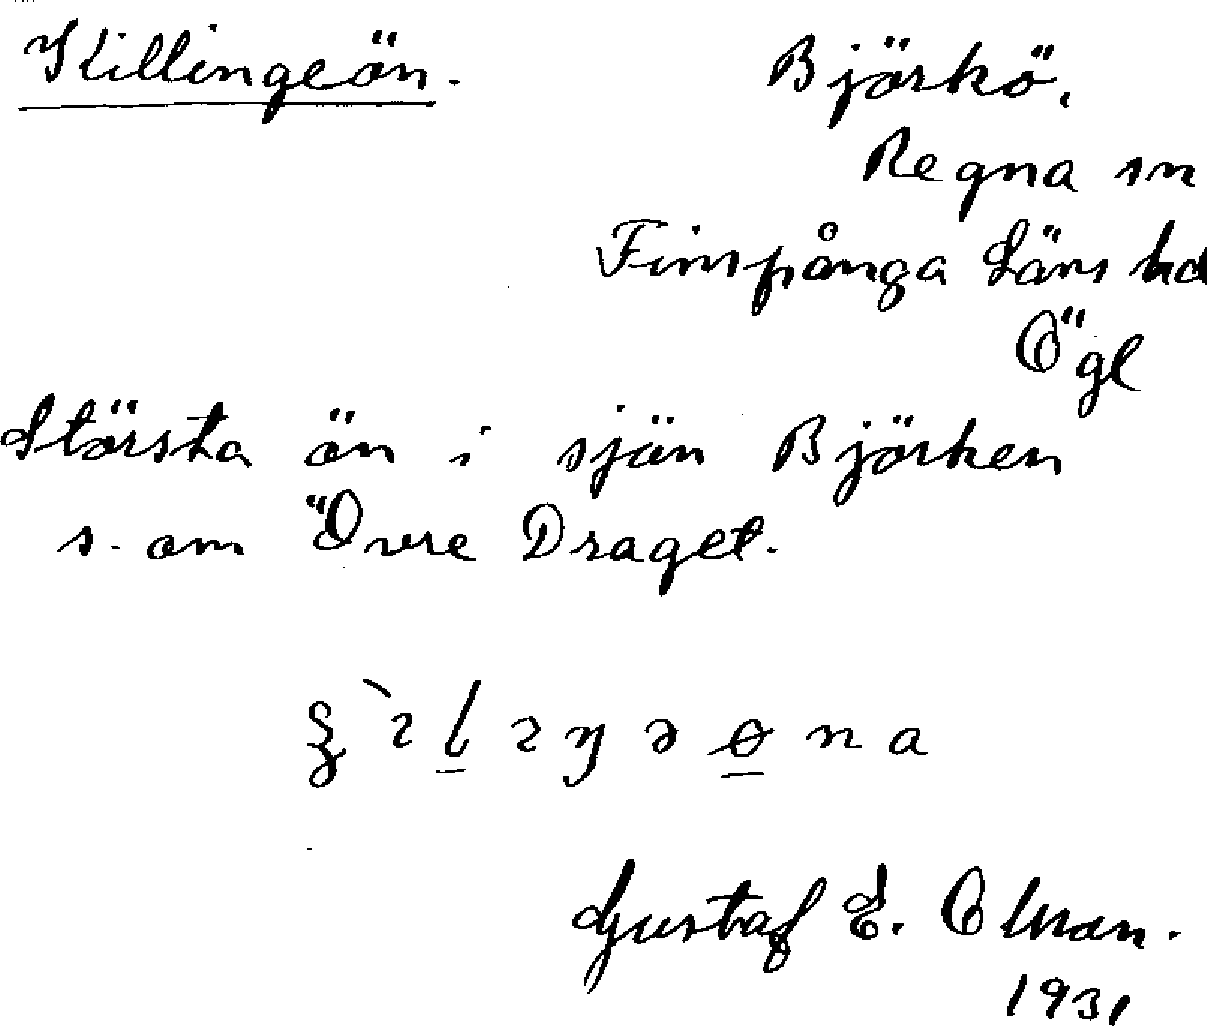 Killingeön. Björkö,
Regna sn
Finspånga Läns hd
Ögl
Största ön i sjön Björken
s. om Övre Draget.
Gustaf E.
1931